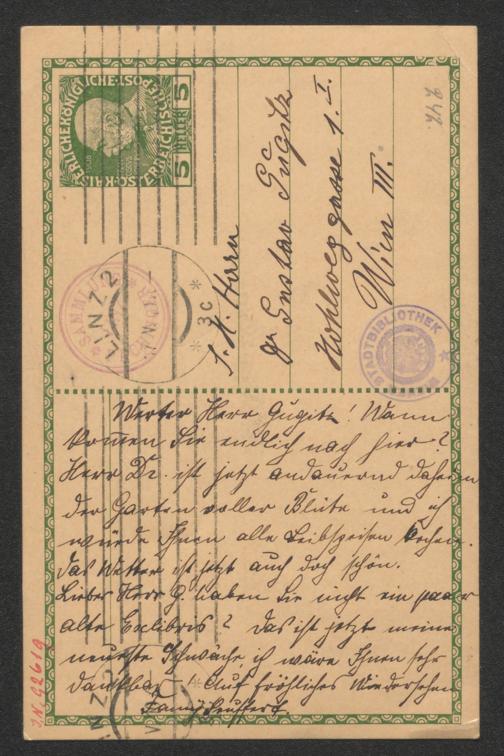 KAISERLICHEKÖNIGLICHE ÖSTERREICHISCHE POST
5 HELLER 5
LINZ 2
3c
SAMMLUNG
STADTBIBLIOTHEK
S. H. Herrn
Gustav Gugitz
Kohlweggasse 1. I.
Wien III.
Werter Herr Gugitz! Wann
kommen Sie endlich nach hier?
Herr Dr. ist jetzt andauernd daheim
der Garten voller Blüte und ich
würde Ihnen alle Leibspeisen kochen.
Das Wetter ist jetzt auch doch schön.
Lieber Herr G. haben Sie nicht ein paar
alte Exlibris? Das ist jetzt meine
neueste Schwäche, ich wäre Ihnen sehr
dankbar! Auf fröhliches Wiedersehen
Fanny
I.N. 92619